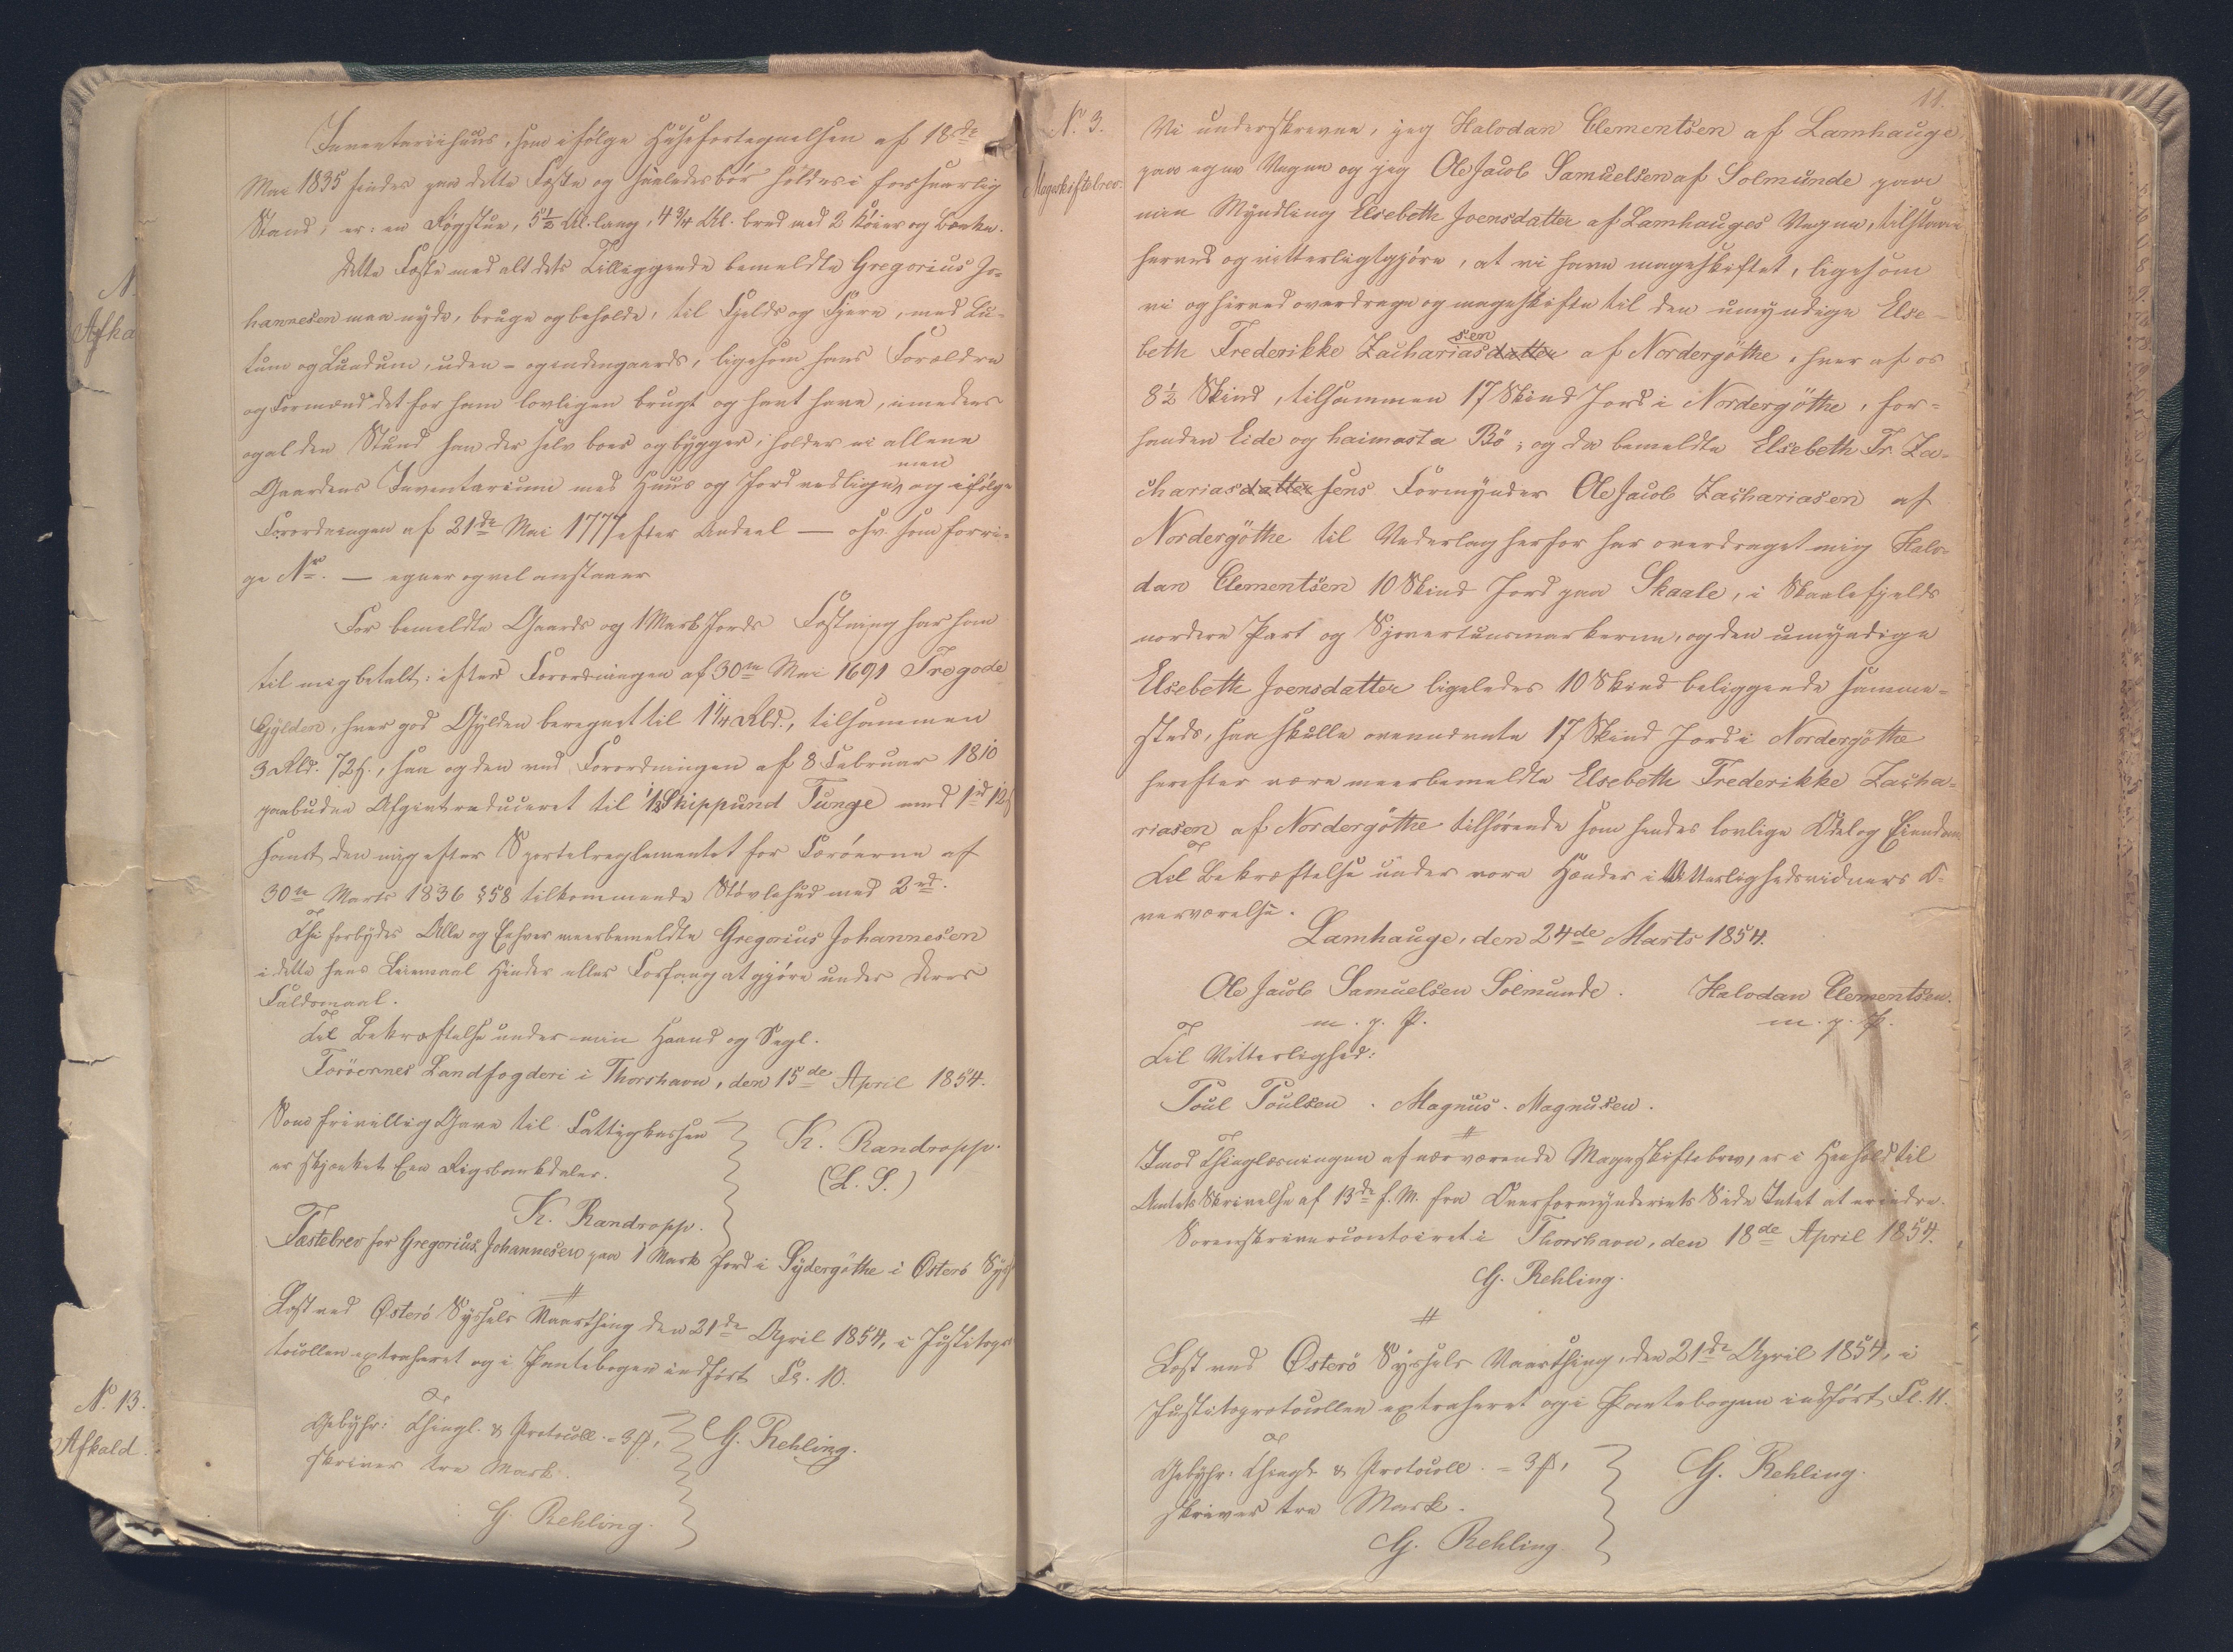 Inventariihuus, som ifølge Huusfortegnelsen af 18de
Mai 1835 findes paa dette Fæste og saaledes bør holdes i forsvarlig
Stand, er: en Røgstue, 5 1/2 Al. lang, 4 3/4 Al. bred med 2 Køier og Bænke.
Dette Fæste med alt dets Tilliggende bemeldte Gregorius Jo-
hannesen maa nyde, bruge og beholde, til Fjelds og Fjære, med Lu-
tum og Lundum, uden- og indengaards, ligesom hans Forældre
og Formænd det før ham lovligen brugt og havt have, imedens
og al den Stund han der selv boer og bygger, holder ei allene
Gaardens Inventarium med Huus og Jord vedlige, men og ifølge
Forordningen af 21de Mai 1777 efter Andeel — osv. som forri-
ge Nr. — egner og vel anstaaer
For bemeldte Gaards og 1 Mark Jords Fæstning har han
til mig betalt: efter Forordningen af 30te Mai 1691 Tre gode
Gylden, hver god Gylden beregnet til 1 1/4 Rbd., tilsammen
3 Rbd. 72 s., saa og den ved Forordningen af 8 Februar 1810
paabudne Afgivt reduceret til 1/2 Skippund Tunge med 1 rd 12 s
samt den mig efter Sportelreglementet for Færøerne af
30te Marts 1836 §58 tilkommende Støvlehud med 2 rd.
Thi forbydes Alle og Enhver meerbemeldte Gregorius Johannesen
i dette hans Leiemaal Hinder eller Forfang at gjøre under deres
Faldsmaal.
Til Bekræftelse under min Haand og Segl.
Færöernes Landfogderi i Thorshavn, den 15de April 1854.
Som frivillig Gave til Fattigkassen
er skjænket Een Rigsbankdaler.
K. Randropp.
(L. S.)
K. Randropp.
Fæstebrev for Gregorius Johannesen paa 1 Mark Jord i Sydergøthe i Østerö Syss
Læst ved Østerö Syssels Vaarthing den 21de April 1854, i Justitspro
tocollen extraheret og i Pantebogen indført Fol. 10.
Gebyhr: Thingl. & Protocoll. = 3 ß,
skriver tre Mark.
G. Rehling.
G. Rehling.
N. 13.
Afkald
11.
No. 3.
Mageskiftebrev.
Vi underskrevne, jeg Halvdan Clementsen af Lamhauge,
paa egne Vegne og jeg Ole Jacob Samuelsen af Solmunde paa
min Myndling Elsebeth Joensdatter af Lamhauges Vegne, tilstaae
herved og vitterligtgjøre, at vi have mageskiftet, ligesom
vi og herved overdrage og mageskifte til den umyndige Else-
beth Frederikke Zachariasdatter sen af Nordergöthe, hver af os
8 1/2 Skind, tilsammen 17 Skind Jord i Nordergöthe, for-
handen Eide og haimasta Bö; og da bemeldte Elsebeth Fr. Za-
chariasdatter sens Formynder Ole Jacob Zachariasen af
Nordergöthe til Vederlag herfor har overdraget mig Halv-
dan Clementsen 10 Skind Jord paa Skaale, i Skaalefjelds
nordere Part og Sjovertunsmarkerne, og den umyndige
Elsebeth Joensdatter ligeledes 10 Skind beliggende samme-
steds, saa skulle ovennævnte 17 Skind Jord i Nordergöthe
herefter være meerbemeldte Elsebeth Frederikke Zacha-
riasen af Nordergöthe tilhørende som hendes lovlige Odel og Eiendom
Til Bekræftelse under vore Hænder i Vitterlighedsvidners O-
verværelse.
Lamhauge, den 24de Marts 1854.
Ole Jacob Samuelsen Solmunde. Halvdan Clementsen.
m. p. P. m. p. P.
Til Vitterlighed:
Poul Poulsen. Magnus Magnusen.
Imod Thinglæsningen af nærværende Mageskiftebrev, er i Henhold til
Amtets Skrivelse af 13de f. M. fra Overformynderiets Side Intet at erindre.
Sorenskrivercontoiret i Thorshavn, den 18de April 1854.
G. Rehling.
Læst ved Østerö Syssels Vaarthing, den 21de April 1854, i
Justitsprotocollen extraheret og i Pantebogen indført Fol. 11.
Gebyhr: Thingl. & Protocoll. = 3 ß,
skriver tre Mark.
G. Rehling.
G. Rehling.